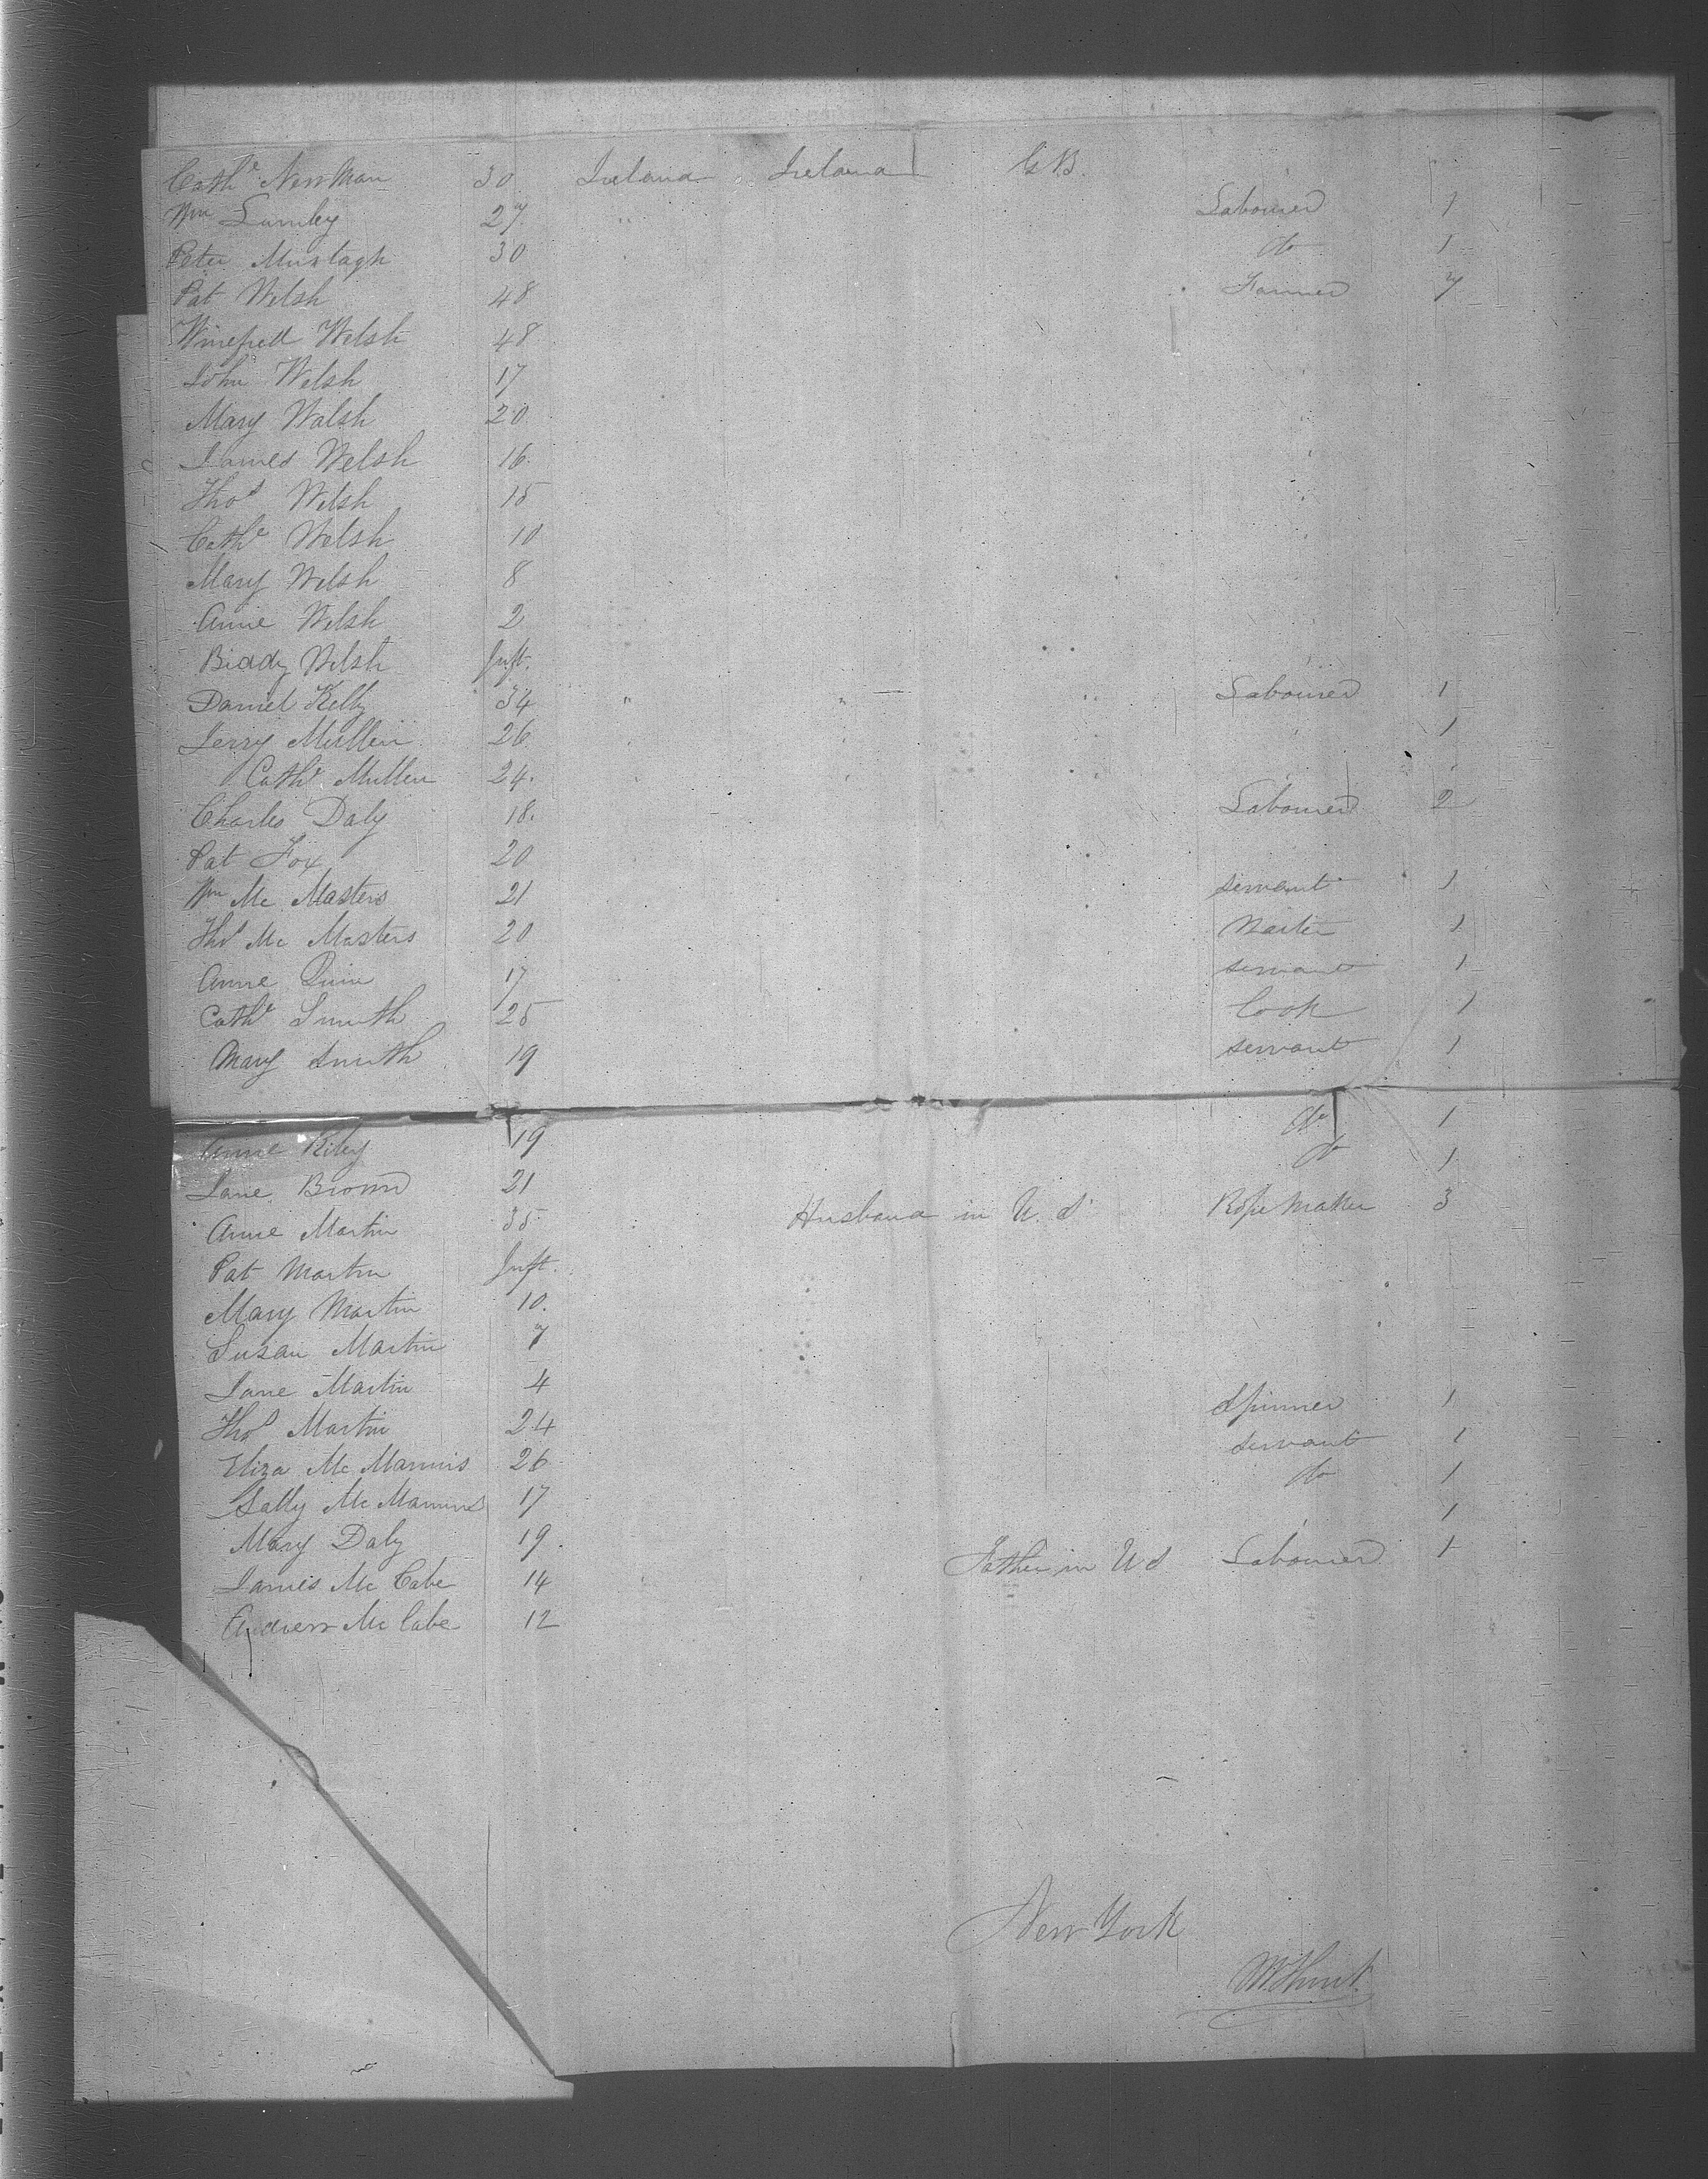 Cathe Newman 30 Ireland Ireland G B.
Wm Lumley 27 " Labourer 1
Peter Murtagh 30 " do 1
Pat Welsh 48 Farmer 7
Winefred Welsh 48
John Welsh 17
Mary Walsh 20
James Welsh 16
Thos Welsh 15
Cathe Welsh 10
Mary Welsh 8
Anne Welsh 2
Biddy Welsh Inft.
Daniel Kelly 34 " " " Labourer 1
Jerry Mullen 26 1
Cathe Mullen 24.
Charles Daly 18. Labourer 2
Pat Fox 20
Wm Mc Masters 21 servant 1
Thos Mc Masters 20 1
Anne Quin 17 servant 1
Cathe Smith 25 Cook 1
Mary Smith 19 servant 1
Anne Riley 19 do 1
Jane Brown 21 do 1
Anne Martin 35 Husband in U. S. Rope Maker 3
Pat Martin Inft.
Mary Martin 10.
Susan Martin 7
Jane Martin 4
Thos Martin 24 Spinner 1
Eliza Mc Mannis 26 servant 1
Sally Mc Mannis 17 do 1
Mary Daly 19. 1
James Mc Cabe 14 Father in U S Labourer 1
Andrew Mc Cabe 12
New York